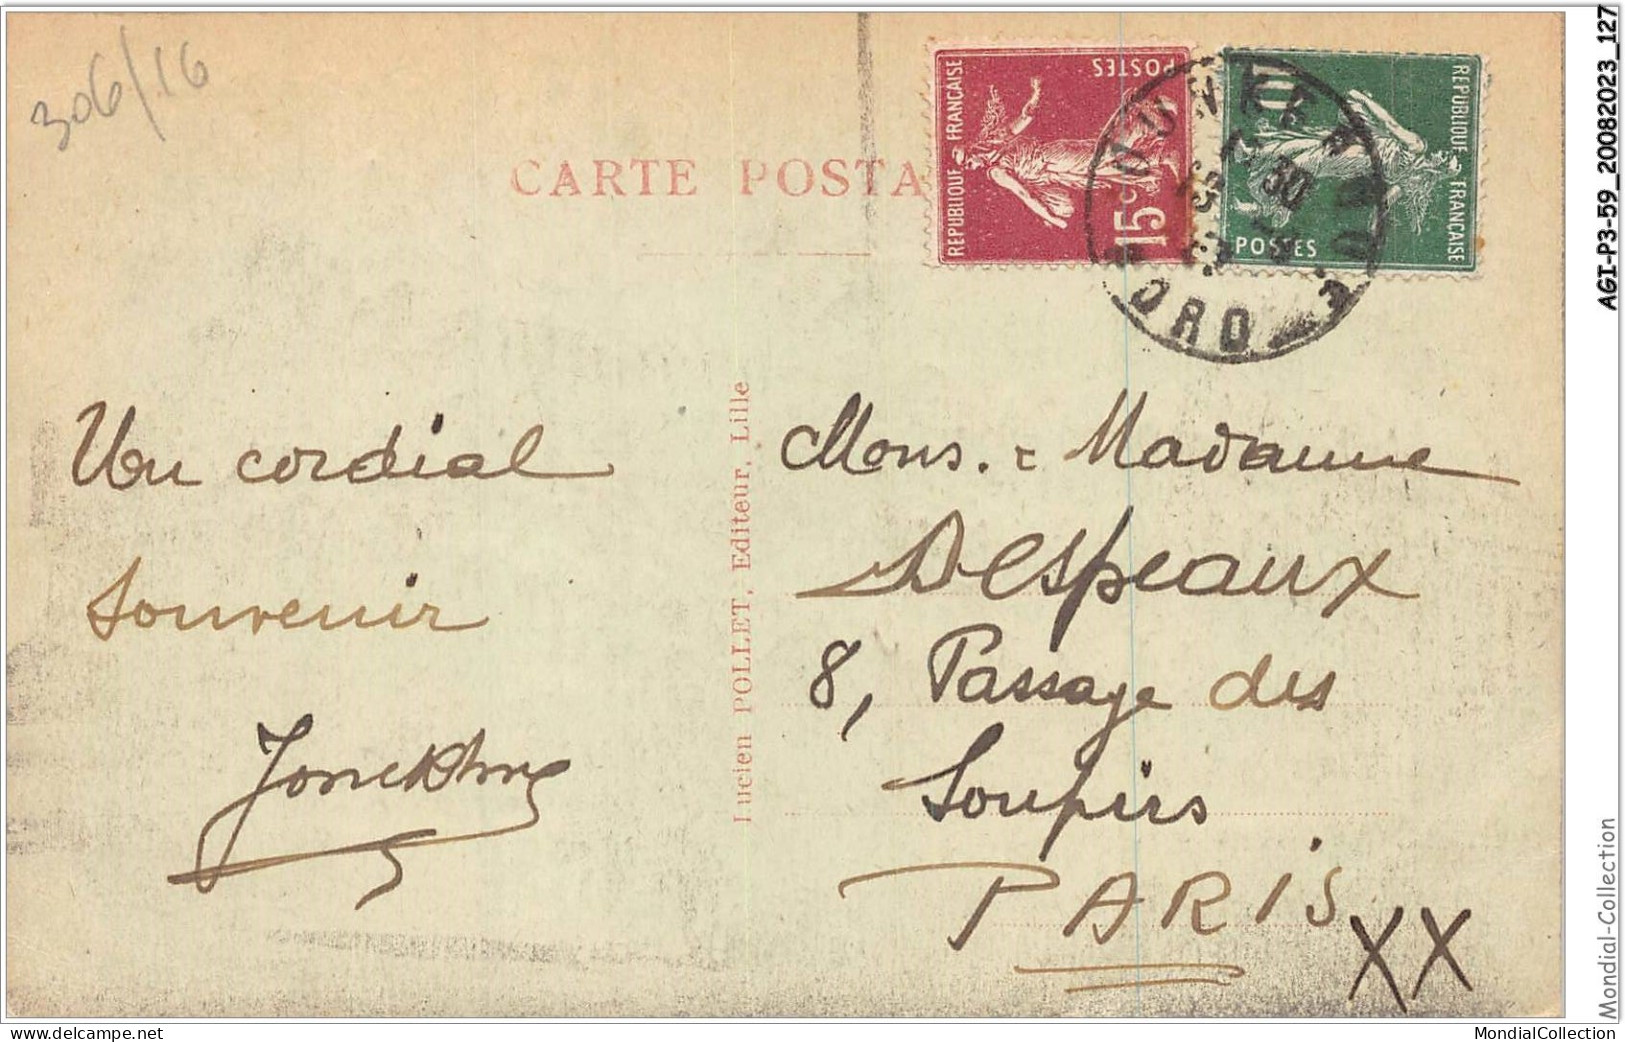 306/16
CARTE POSTA
REPUBLIQUE FRANCAISE
POSTES
15c
REPUBLIQUE FRANCAISE
POSTES
10
DUNKERQUE
NORD
30
Un cordial
souvenir
Lucien POLLET, Editeur, Lille
Mons. & Madame
Despeaux
8, Passage des
Soupirs
PARIS
XX
AGI-P3-59_20082023_127
Mondial-Collection
www.delcampe.net
MondialCollection